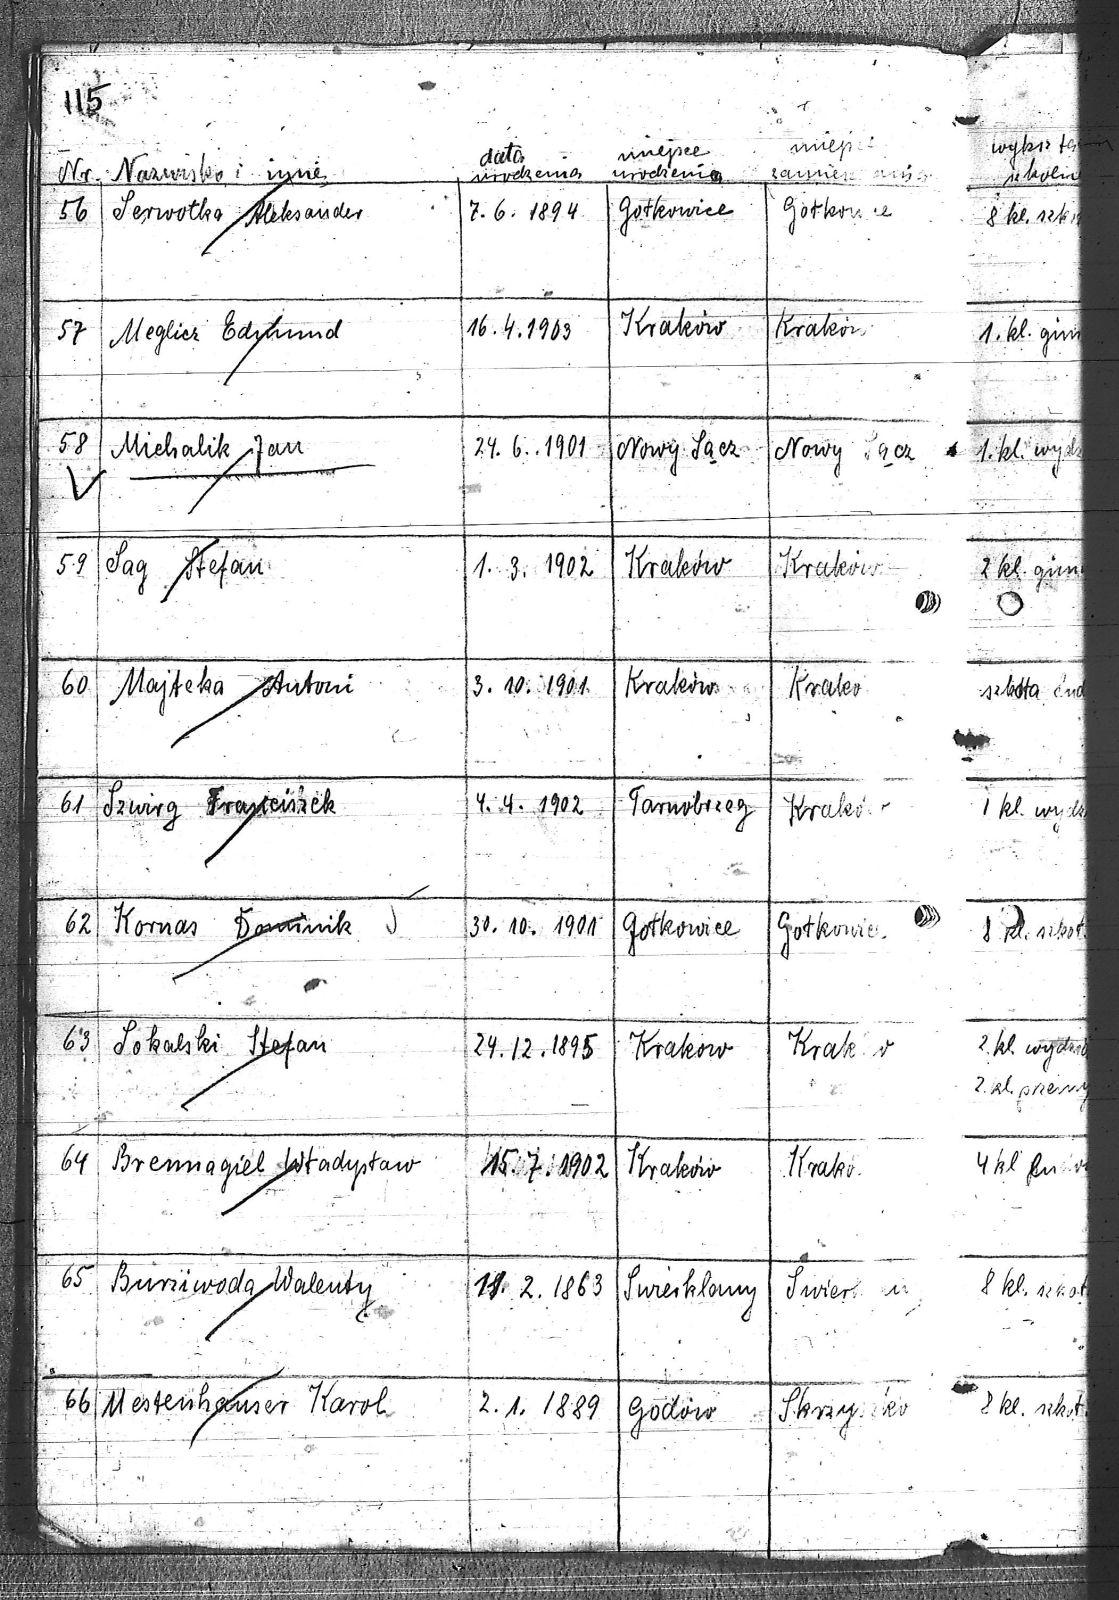 115
Nr. Nazwisko i imię data urodzenia miejsce urodzenia miejsc
56 Serwotka Aleksander 7. 6. 1894 Gołkowice Gołkow ce 8 kl. szk
57 Meglicz Edmund 16. 4. 1903 Kraków Kraków 1. kl. gim
58 Michalik Jan 24. 6. 1901 Nowy Sącz Nowy Sącz 1. kl. wydz
59 Sag Stefan 1. 3. 1902 Kraków Kraków 2 kl. gim
60 Majteka Antoni 3. 10. 1901 Kraków Krako szkoła
61 Szwirg Franciszek 4. 4. 1902 Tarnobrzeg Krakó 1 kl. wydz
62 Kornas Dominik 30. 10. 1901 Gołkowice Gołkowic 8 kl. szkoł
63 Sokalski Stefan 24. 12. 1895 Krakow Krak w 2 kl. wydz
2 kl. przemy
64 Brennagiel Władysław 15. 7. 1902 Kraków Krako 4 kl
65 Burziwoda Walenty 11. 2. 1863 Swierklany Swier 8 kl. szkoł
66 Mestenhauser Karol 2. 1. 1889 Godów Skrzy ko 8 kl. szkoł